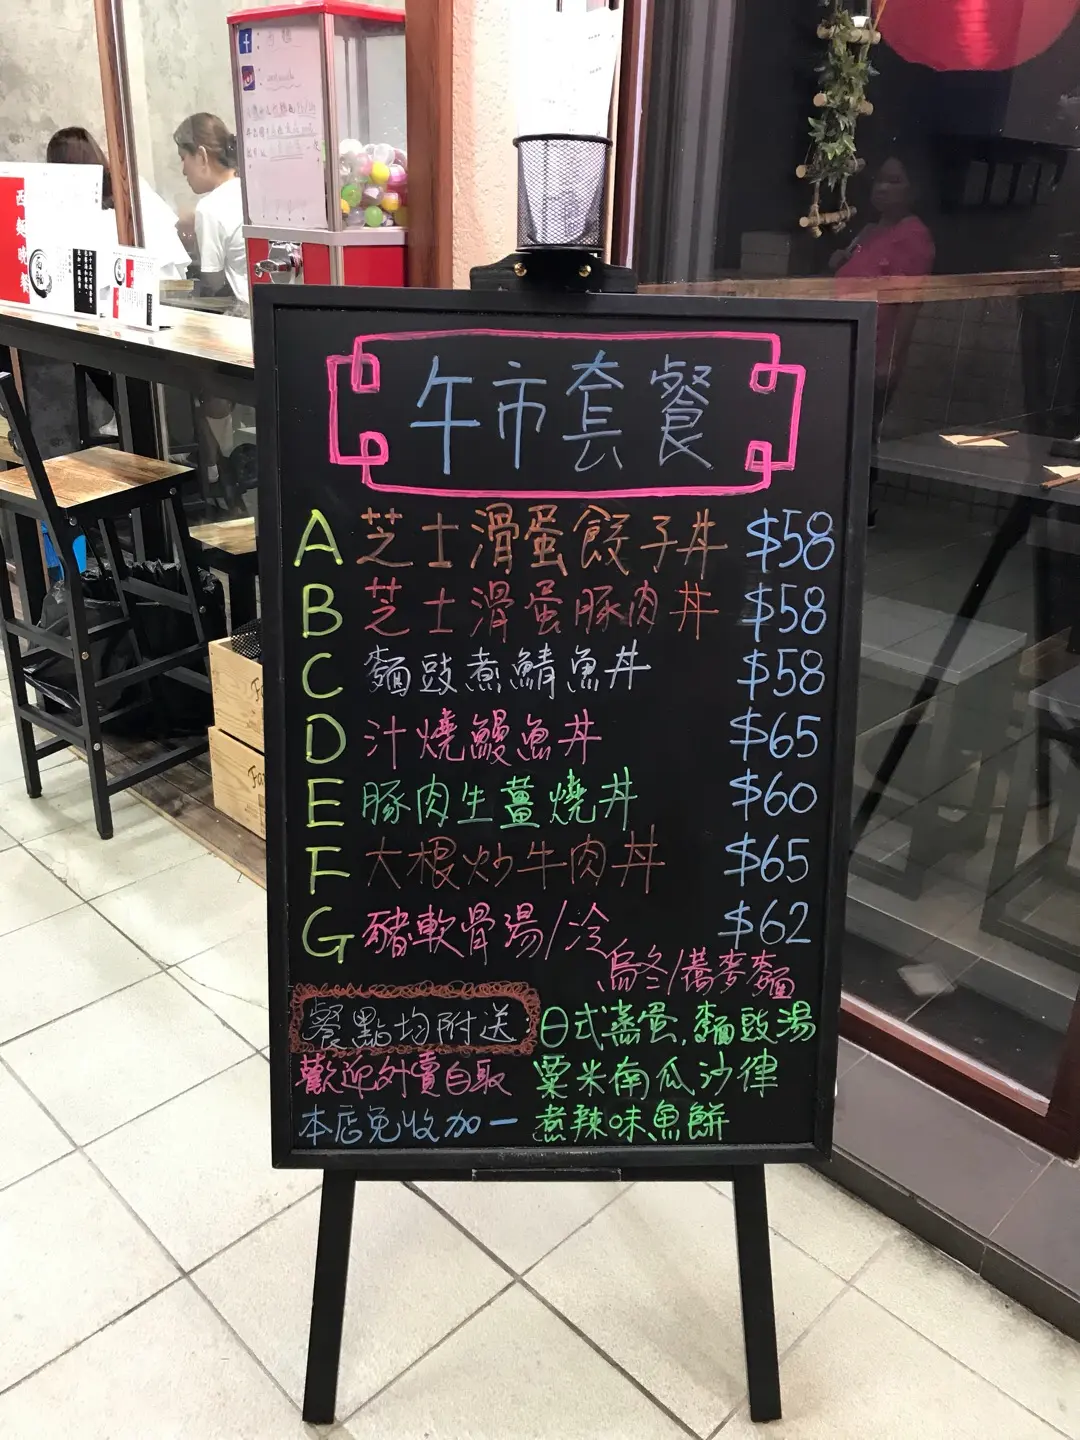 午市套餐
A 芝士滑蛋餃子丼 $58
B 芝士滑蛋豚肉丼 $58
C 麵豉煮鯖魚丼 $58
D 汁燒鰻魚丼 $65
E 豚肉生薑燒丼 $60
F 大根炒牛肉丼 $65
G 豬軟骨湯/冷 $62
烏冬/蕎麥麵
餐點均附送 日式蒸蛋,麵豉湯
歡迎外賣自取 粟米南瓜沙律
本店免收加一 煮辣味魚餅